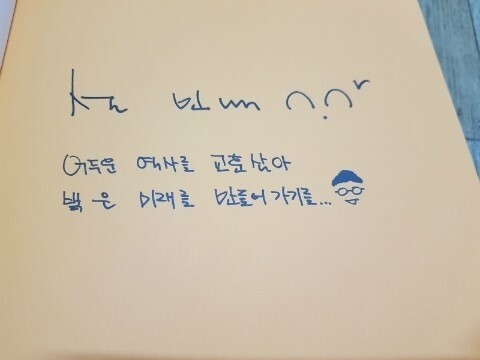 어두운 역사를 교훈삼아
밝은 미래를 만들어가기를...